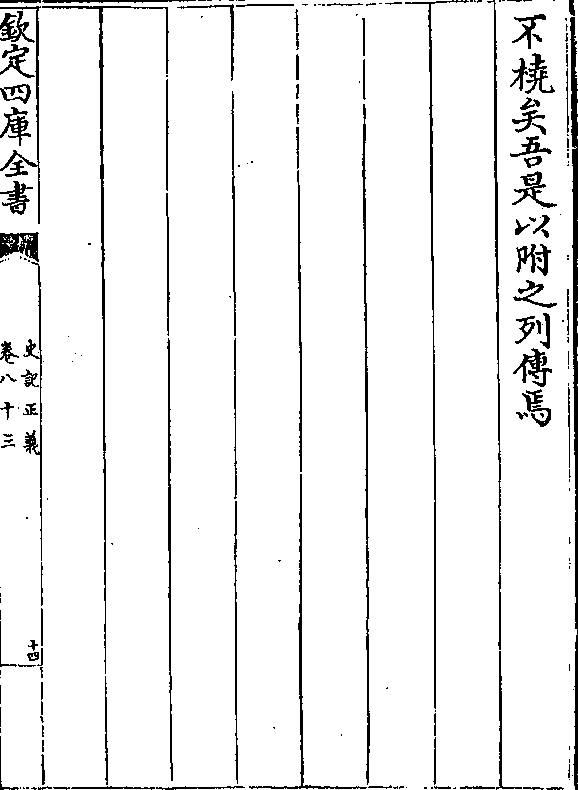 不橈矣吾是以附之列傳焉
欽定四庫全書
史記正義
卷八十三
十四